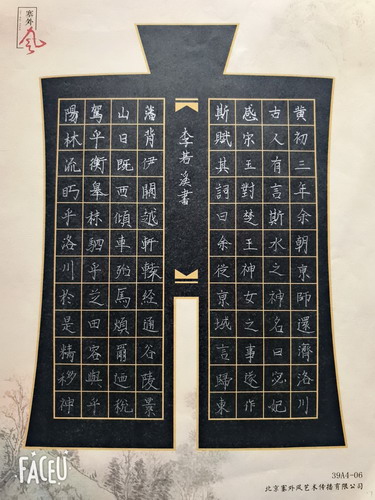 塞外风
黄初三年余朝京師還濟洛川
古人有言斯水之神名曰宓妃
感宋玉對楚王神女之事遂作
斯賦其詞曰余從京域言歸東
李若溪書
藩背伊闕越轘轅经通谷陵景
山日既西傾車殆馬煩爾廼税
駕乎衡皋秣駟乎芝田容與乎
陽林流眄乎洛川於是精移神
39A4-06
北京塞外风艺术传播有限公司
FACEU